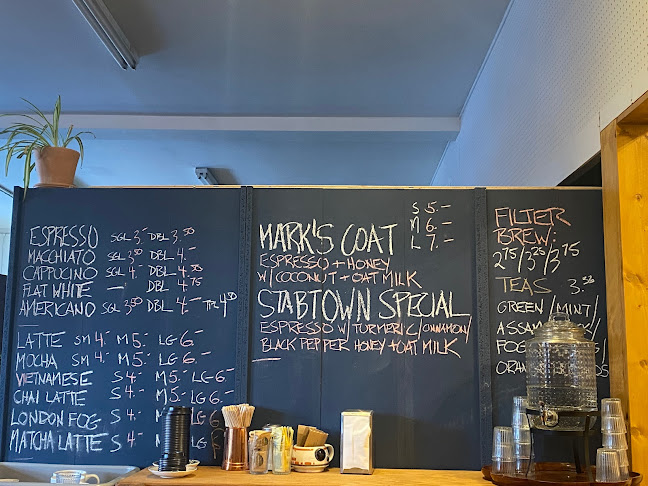 ESPRESSO SGL 3.- DBL 3.50
MACCHIATO SGL 3.50 DBL 4.-
CAPPUCINO SGL 4.- DBL 4.75
FLAT WHITE — DBL 4.75
AMERICANO SGL 3.50 DBL 4.- TPL 4.50
LATTE SM 4.- M 5.- LG 6.-
MOCHA SM 4.- M 5.- LG 6.-
VIETNAMESE S 4.- M 5.- LG 6.-
CHAI LATTE S 4.- M 5.- LG 6.-
LONDON FOG S 4.- M 5.- LG 6.-
MATCHA LATTE S 4.-
S 5.-
M 6.-
L 7.-
MARK'S COAT
ESPRESSO + HONEY
W/ COCONUT + OAT MILK
STABTOWN SPECIAL
ESPRESSO W/ TURMERIC/CINNAMON/
BLACK PEPPER HONEY + OAT MILK
FILTER
BREW:
2.75/3.25/3.75
TEAS 3.50
GREEN/MINT/
ASSAM
FOG
ORAN